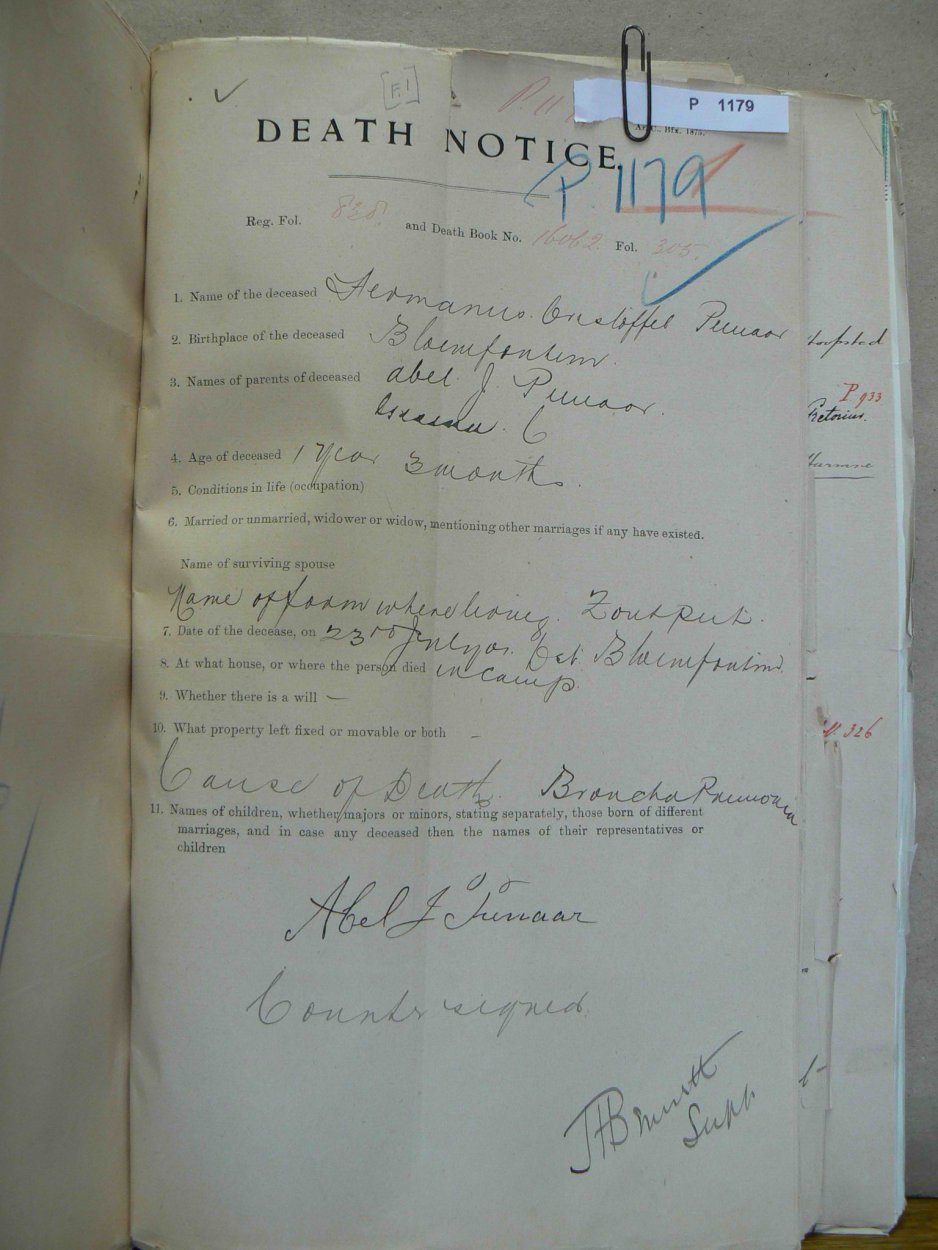 [F.1]
P 11
P 1179
DEATH NOTICE.
P. 1179
Reg. Fol. 838 and Death Book No. 16062 Fol. 305.
1. Name of the deceased Hermanus Cristoffel Pienaar
2. Birthplace of the deceased Bloemfontein.
3. Names of parents of deceased Abel J. Pienaar.
C
4. Age of deceased 1 Year 3 months.
5. Conditions in life (occupation)
6. Married or unmarried, widower or widow, mentioning other marriages if any have existed.
Name of surviving spouse
Name of farm where living. Zoutput.
7. Date of the decease, on 23rd July 01. Dst. Bloemfontein.
8. At what house, or where the person died in camp.
9. Whether there is a will —
10. What property left fixed or movable or both -
Cause of Death. Broncho Pneumonia
11. Names of children, whether majors or minors, stating separately, those born of different
marriages, and in case any deceased then the names of their representatives or
children
Abel J Pienaar
Counter signed.
Supt.
P 933
Pretorius.
326